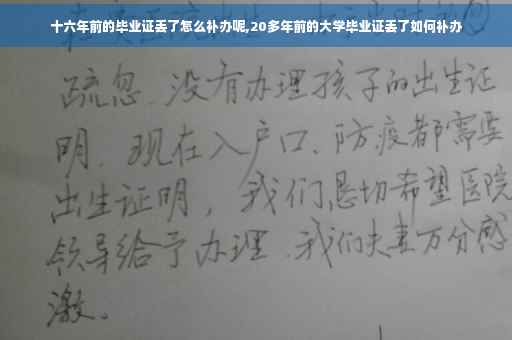 十六年前的毕业证丢了怎么补办呢,20多年前的大学毕业证丢了如何补办
疏忽.没有办理孩子的出生证
明.现在入户口、防疫都需要
出生证明，我们恳切希望医院
领导给予办理.我们夫妻万分感
激。